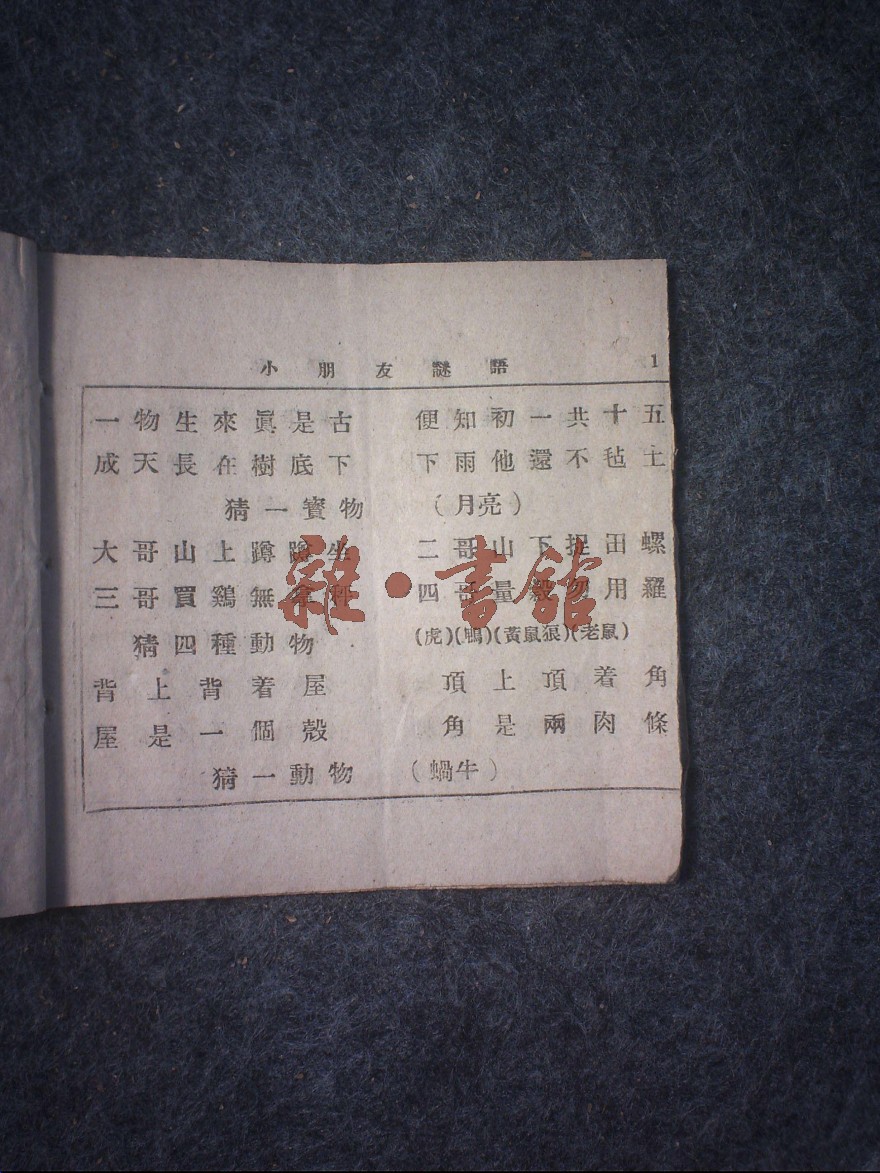 小朋友謎語 1
一物生來眞是古 便知初一共十五
成天長在樹底下 下雨他還不毡土
猜一寶物 (月亮)
大哥山上蹲蹲坐 二哥山下捏田螺
三哥買鷄無 秤 四哥量穀勿用羅
猜四種動物 (虎)(鴨)(黃鼠狼)(老鼠)
背上背着屋 頂上頂着角
屋是一個殼 角是兩肉條
猜一動物 (蝸牛)
雜·書館